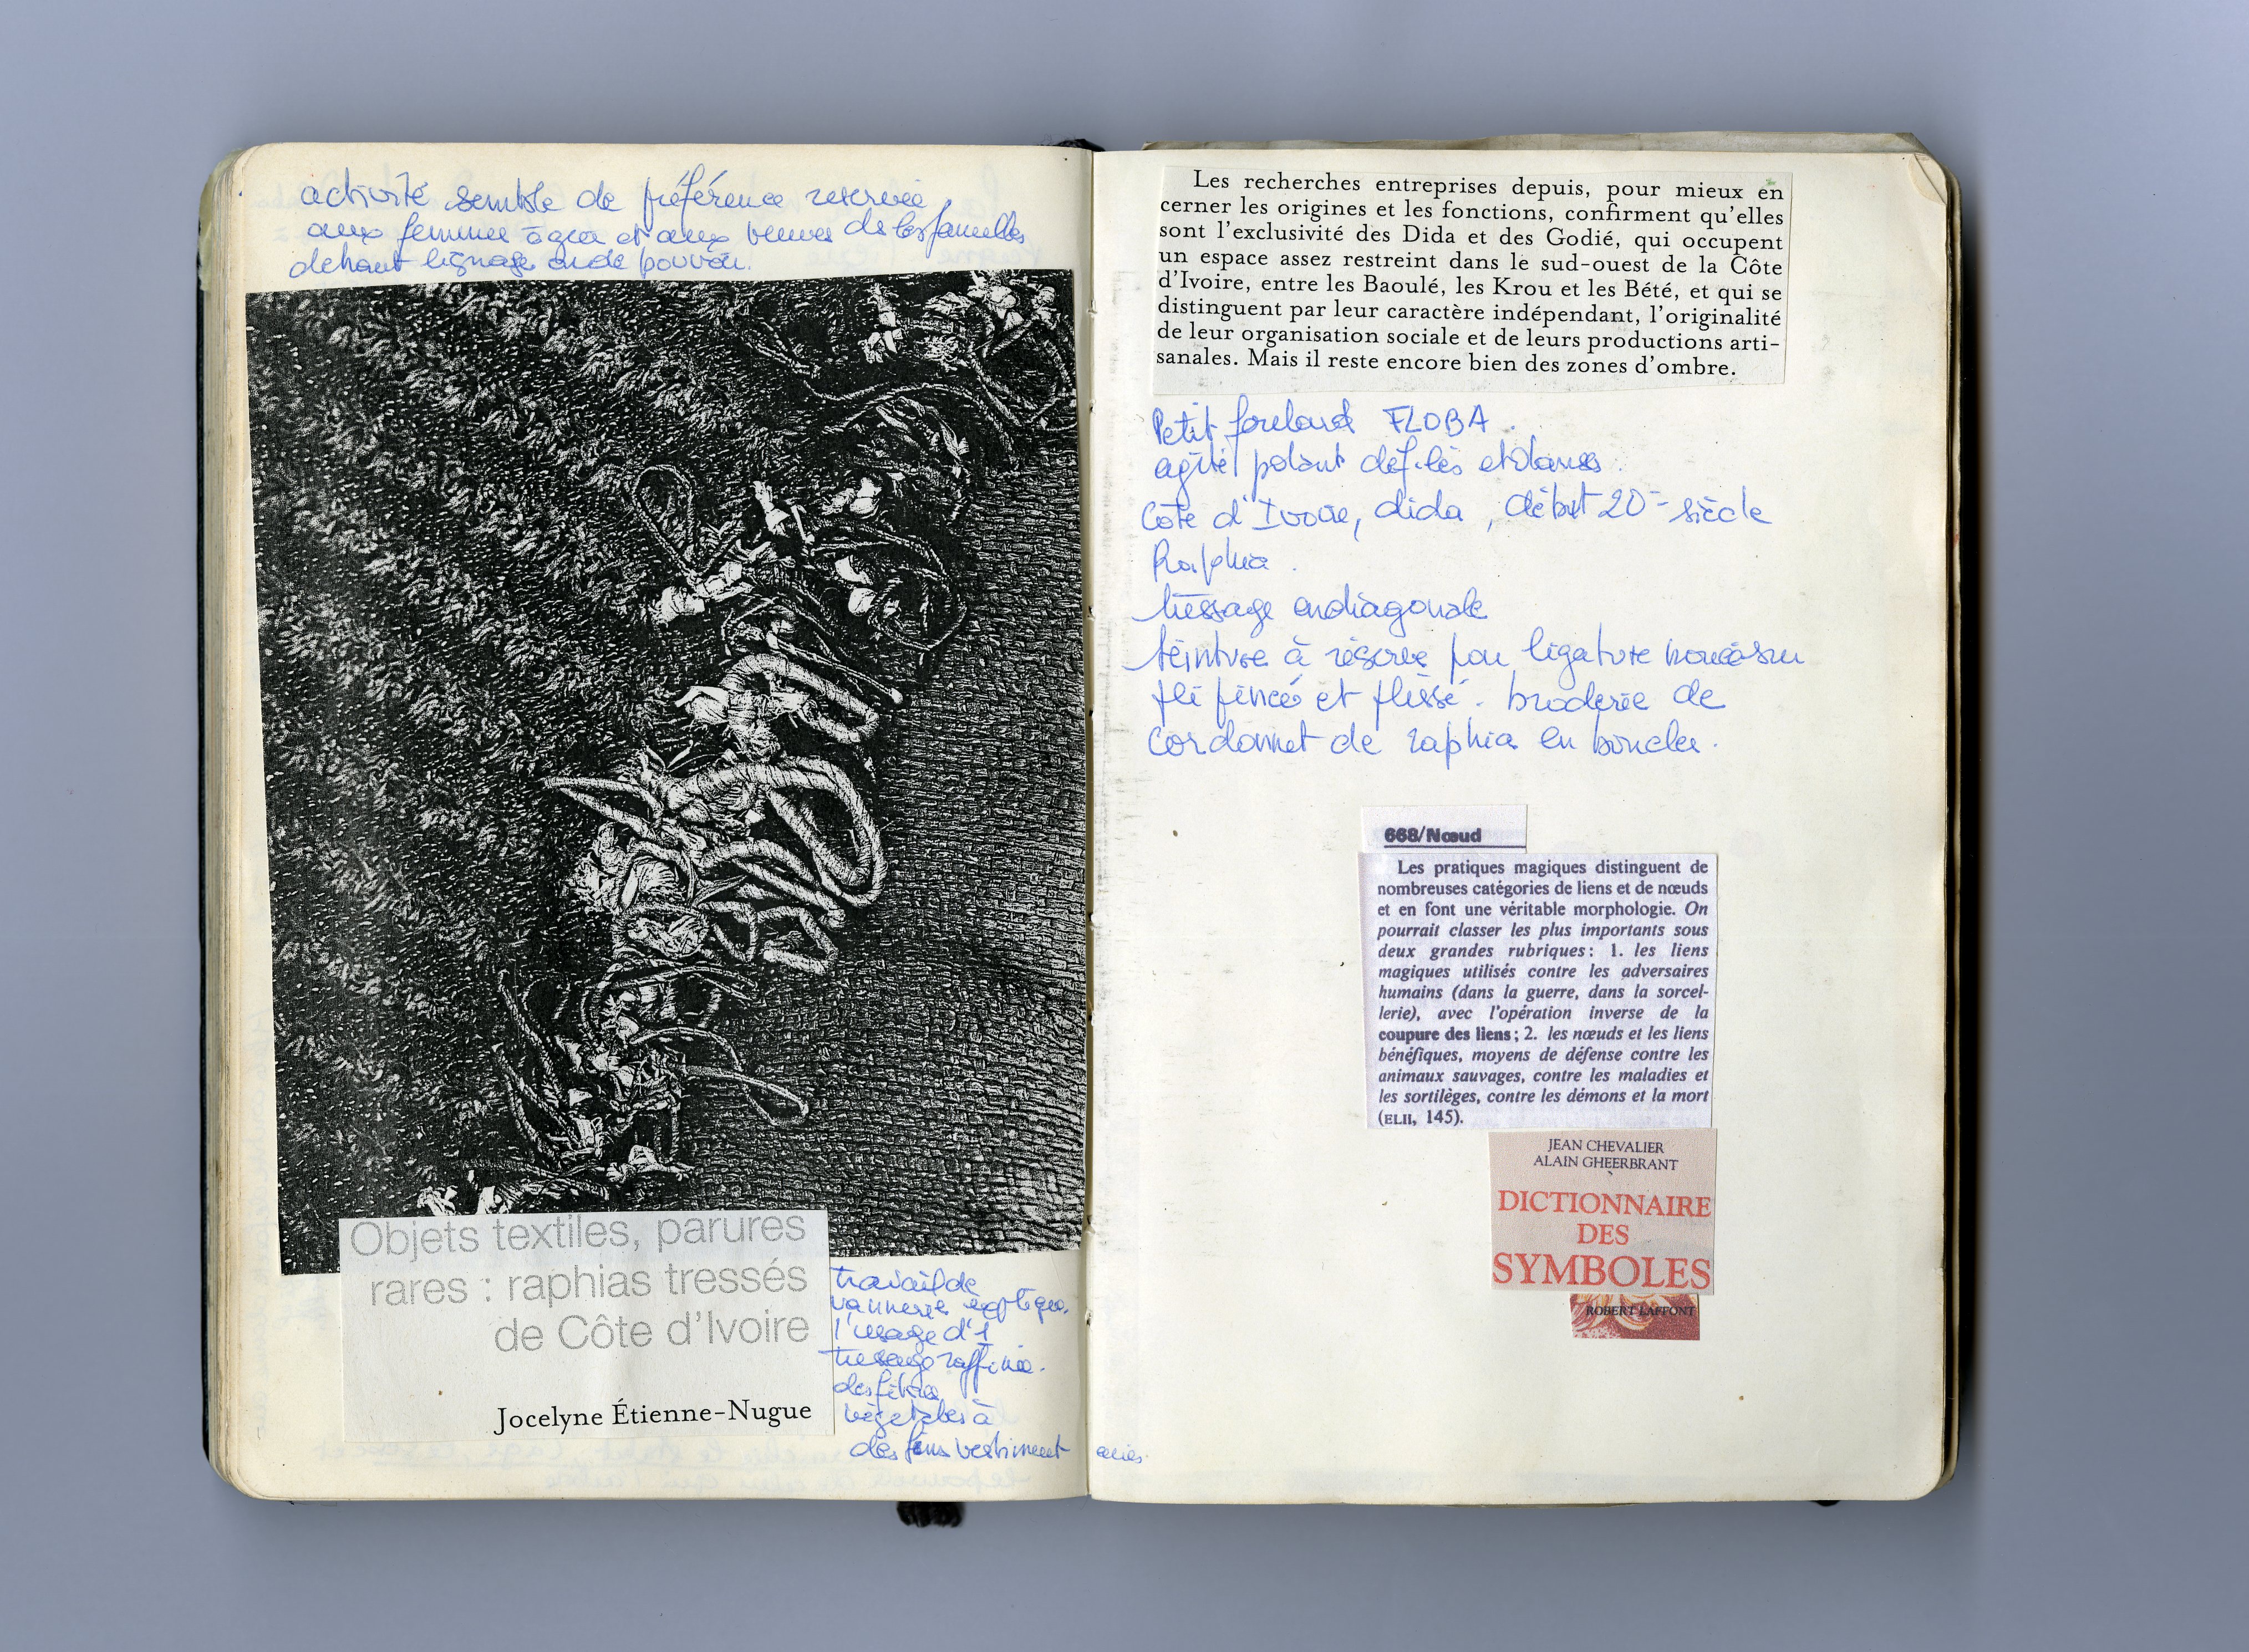 activité semble de préférence reservée
aux femmes âgées et aux veuves de les familles
de haut lignage ou de pouvoir.
Objets textiles, parures
rares : raphias tressés
de Côte d'Ivoire
Jocelyne Étienne-Nugue
travail de
vannerie
l'usage d'1
tressage raffiné
des fibres
végétales à
des fins vestimentaires.
Les recherches entreprises depuis, pour mieux en
cerner les origines et les fonctions, confirment qu'elles
sont l'exclusivité des Dida et des Godié, qui occupent
un espace assez restreint dans le sud-ouest de la Côte
d'Ivoire, entre les Baoulé, les Krou et les Bété, et qui se
distinguent par leur caractère indépendant, l'originalité
de leur organisation sociale et de leurs productions arti-
sanales. Mais il reste encore bien des zones d'ombre.
Petit foulard FLOBA.
agité défilés et danses.
Côte d'Ivoire, dida, début 20e siècle
Raphia.
tressage en diagonale
teinture à réserve par ligature
pli pincé et plissé. broderie de
cordonnet de raphia en boucles.
668/Nœud
Les pratiques magiques distinguent de
nombreuses catégories de liens et de nœuds
et en font une véritable morphologie. On
pourrait classer les plus importants sous
deux grandes rubriques : 1. les liens
magiques utilisés contre les adversaires
humains (dans la guerre, dans la sorcel-
lerie), avec l'opération inverse de la
coupure des liens ; 2. les nœuds et les liens
bénéfiques, moyens de défense contre les
animaux sauvages, contre les maladies et
les sortilèges, contre les démons et la mort
(ELII, 145).
JEAN CHEVALIER
ALAIN GHEERBRANT
DICTIONNAIRE
DES
SYMBOLES
ROBERT LAFFONT